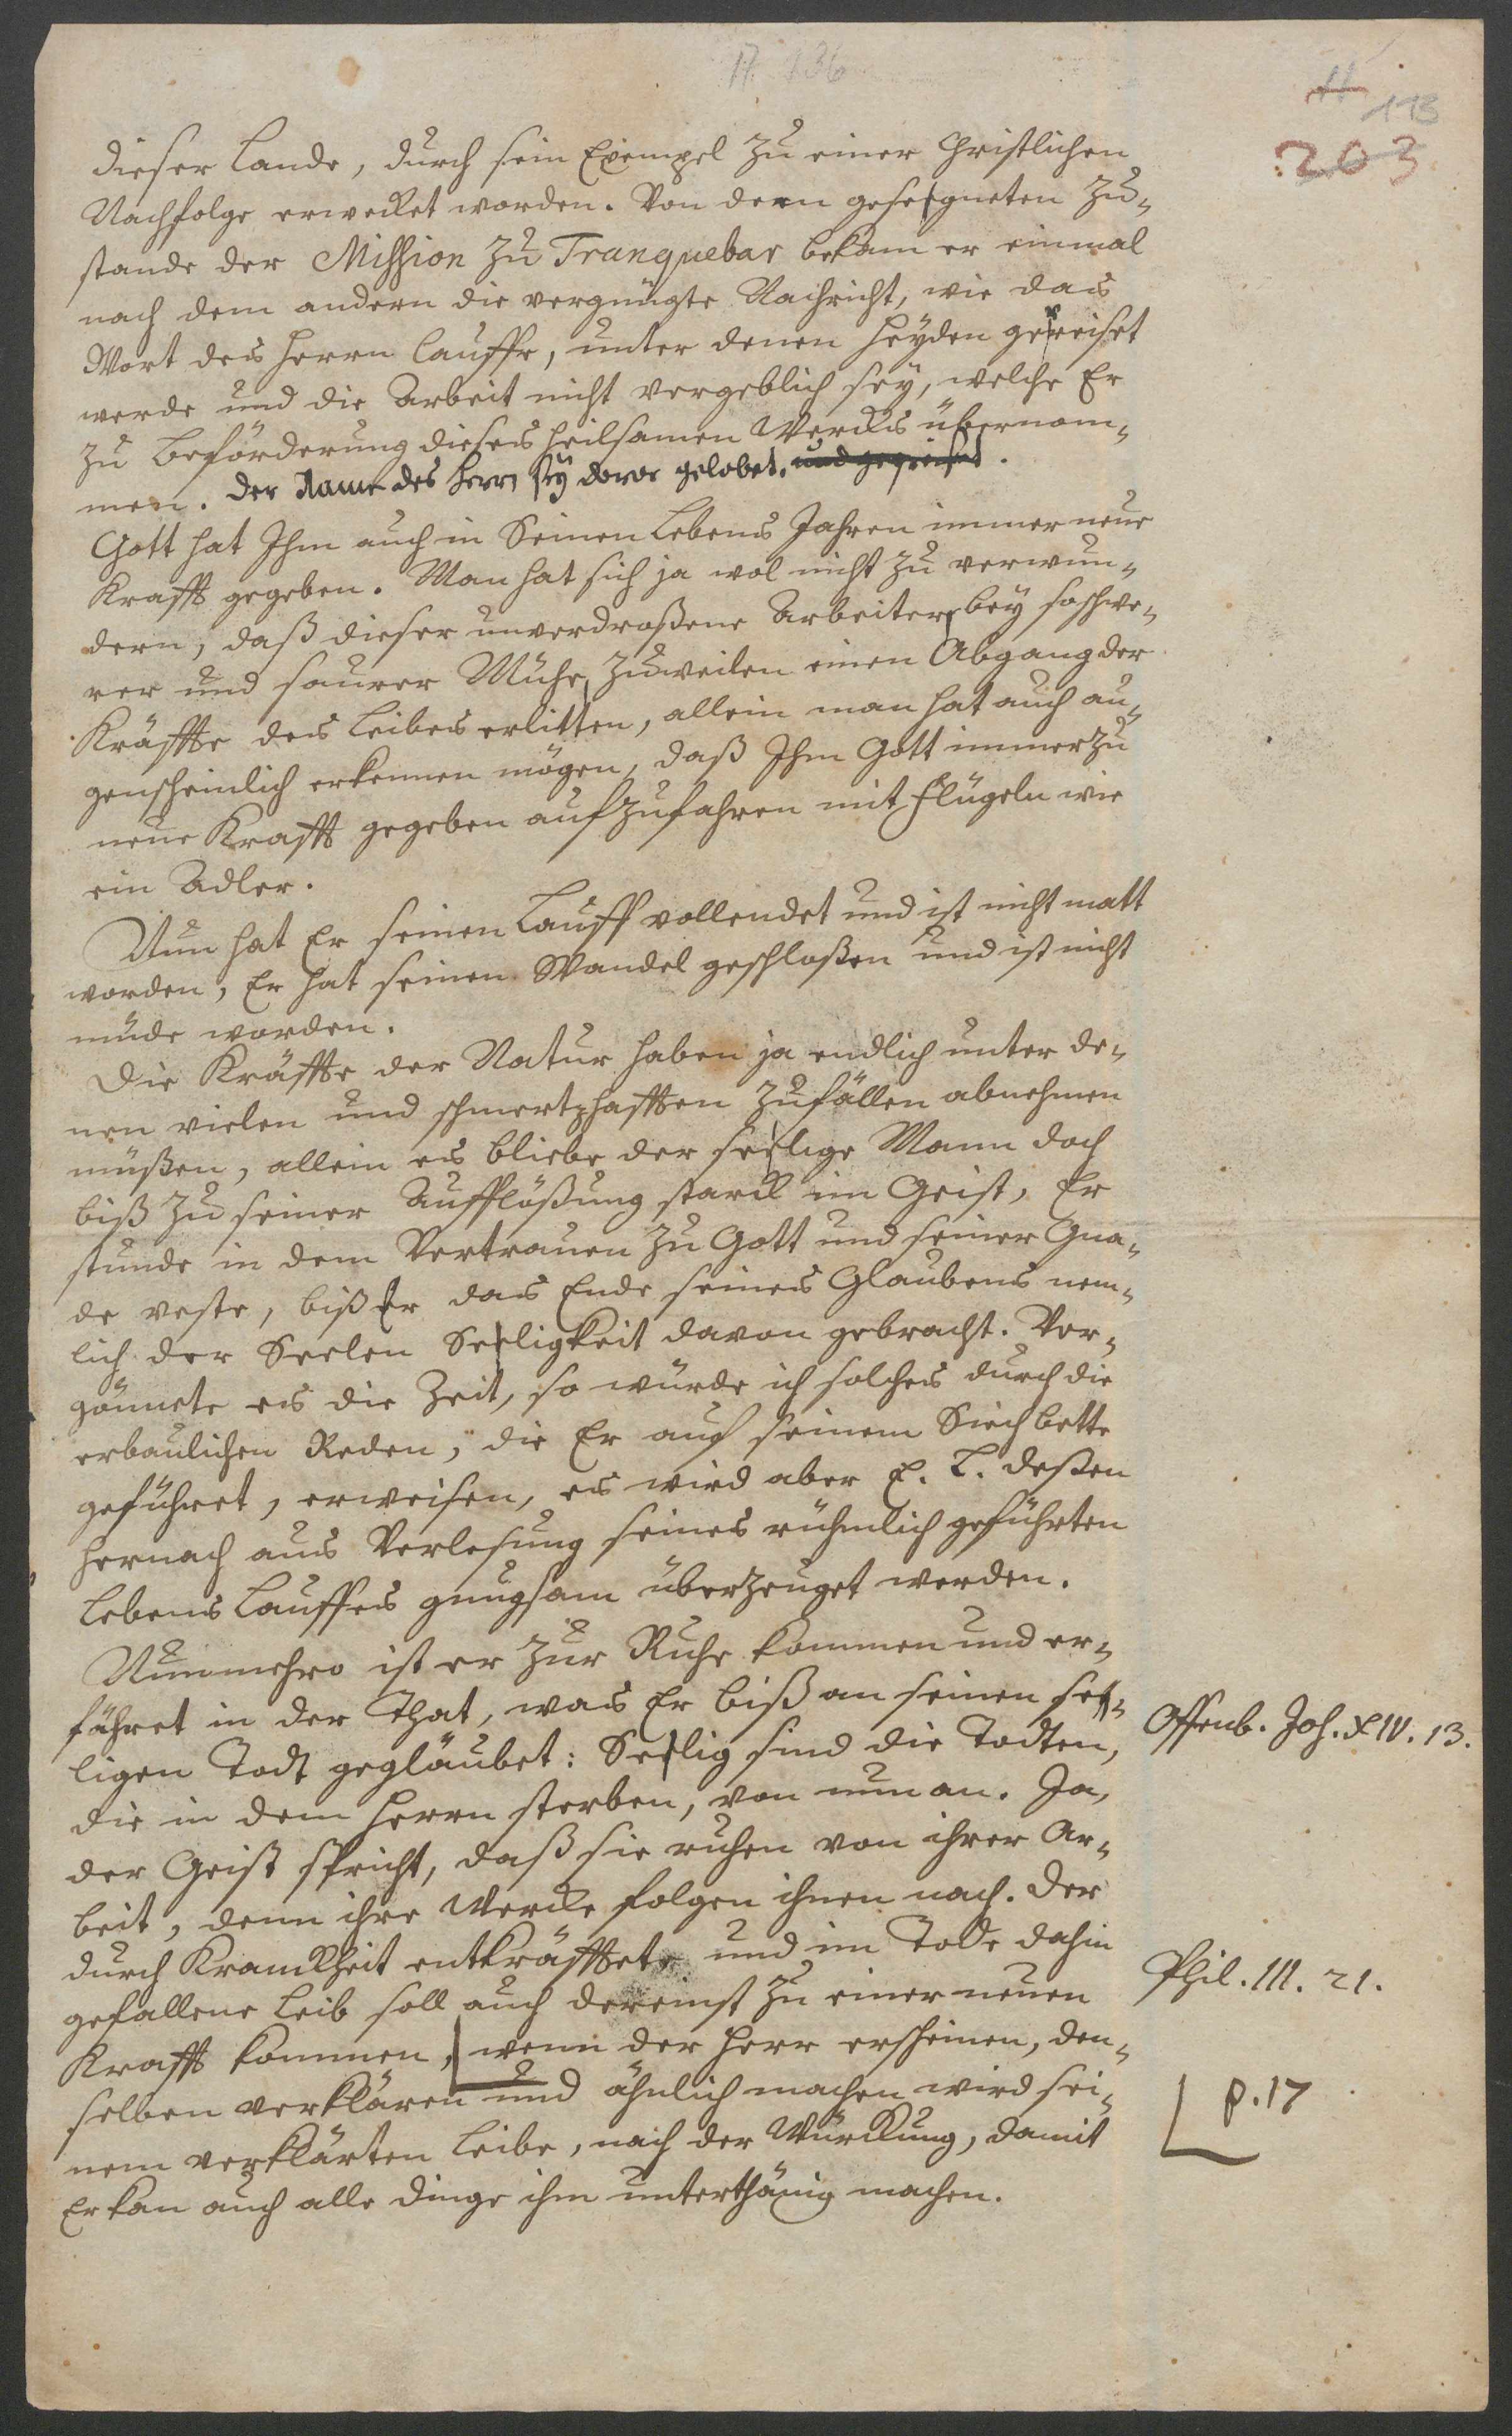 17. 136
11
113
203
dieser Lande, durch sein Exempel zu einer Christlichen
Nachfolge erwecket worden. Von dem geseegneten Zu-
stande der Mission zu Tranquebar bekam er einmal
nach dem andern die vergnügte Nachricht, wie das
Wort des Herrn lauffe, unter denen Heyden gepreiset
werde und die Arbeit nicht vergeblich sey, welche Er
zu Beförderung dieses heilsamen Wercks übernom-
men. Der Name des Herrn sey davor gelobet. und gepreiset.
Gott hat Ihm auch in Seinen Lebens Jahren immer neue
Krafft gegeben. Man hat sich ja wol nicht zu verwun-
dern, daß dieser unverdroßene Arbeiter, bey so schwe-
rer und saurer Mühe, zuweilen einen Abgang der
Kräffte des Leibes erlitten, allein man hat auch au-
genscheinlich erkennen mögen, daß Ihm Gott immerzu
neue Krafft gegeben aufzufahren mit Flügeln wie
ein Adler.
Nun hat Er seinen Lauff vollendet und ist nicht matt
worden, Er hat seinen Wandel geschloßen und ist nicht
müde worden.
Die Kräffte der Natur haben ja endlich unter de-
nen vielen und schmertzhafften Zufällen abnehmen
müßen, allein es bliebe der seelige Mann doch
biß zu seiner Aufflößung starck im Geist, Er
stunde in dem Vertrauen zu Gott und seiner Gna-
de veste, biß Er das Ende seines Glaubens nem-
lich der Seelen Seeligkeit davon gebracht. Ver-
gönnete es die Zeit, so würde ich solches durch die
erbaulichen Reden, die Er auf seinem Siechbette
geführet, erweisen, es wird aber E. L. deßen
hernach aus Verlesung seines rühmlich geführten
Lebens Lauffes gnugsam überzeuget werden.
Nunmehro ist er zur Ruhe kommen und er-
fähret in der That, was Er biß an seinen see-
ligen Todt gegläubet: Seelig sind die Todten,
Offenb. Joh. XIV. 13.
die in dem Herrn sterben, von nun an. Ja,
der Geist spricht, daß sie ruhen von ihrer Ar-
beit, denn ihre Wercke folgen ihnen nach. Der
durch Kranckheit entkräfftete und im Tode dahin
gefallene Leib soll auch dereinst zu einer neuen
Phil. III. 21.
Krafft kommen, wenn der Herr erscheinen, den-
selben verklären und ähnlich machen wird sei-
p. 17
nem verklärten Leibe, nach der Würckung, damit
Er kan auch alle Dinge ihm unterthänig machen.